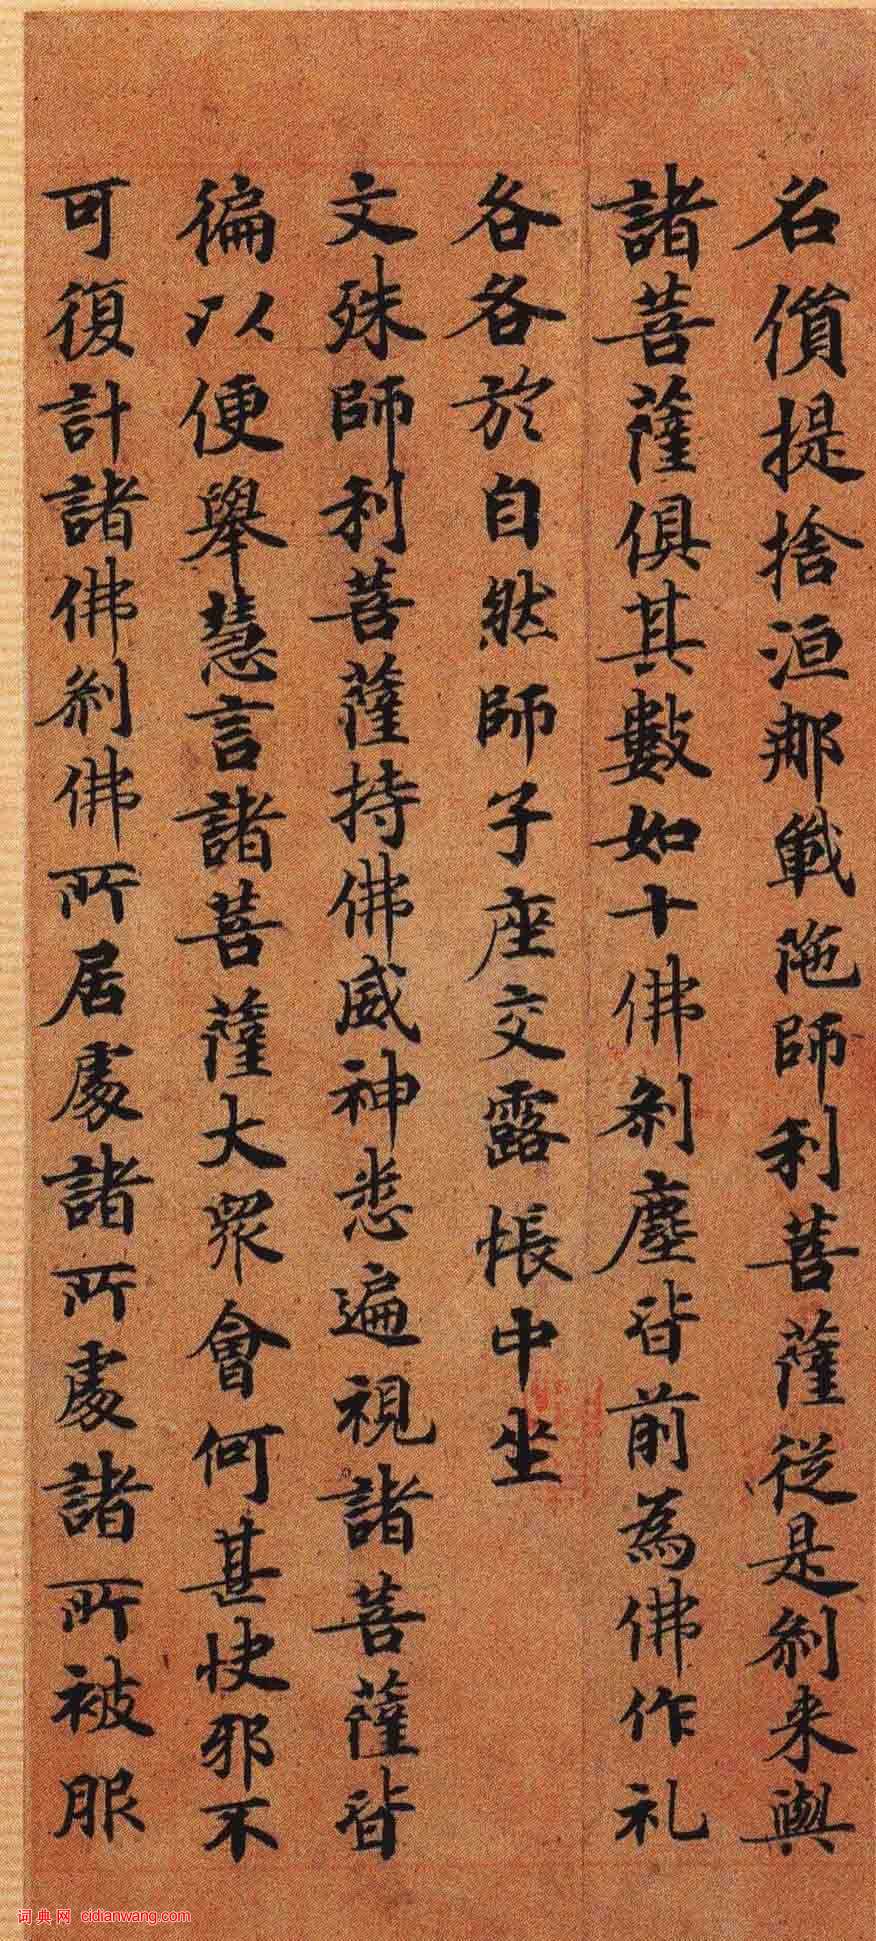 名提捨洹那戰陁師利菩薩從是刹来與
諸菩薩俱其數如十佛刹塵皆前為佛作礼
各各於自然師子座交露帳中坐
文殊師利菩薩持佛威神悉遍視諸菩薩皆
徧以便舉慧言諸菩薩大眾會何甚快邪不
可復計諸佛刹佛所居處諸所處諸所被服
词典网 cidianwang.com